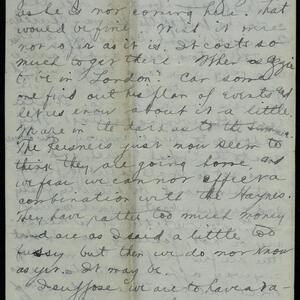 as he is not coming here. that
would be fine. Well it is more
not or as it is. It costs so
much to get there. When is
to be in London? Can some
one find out his plan of events and
let us know about it a little.
We are in the dark as to the
The just now seem to
think they are going home and
we fear we cannot effect a
combination with the Haynes.
They have rather too much money
and are as I said a little too
fussy but then we do not know
as yet. It may be.
I suppose we are to have a